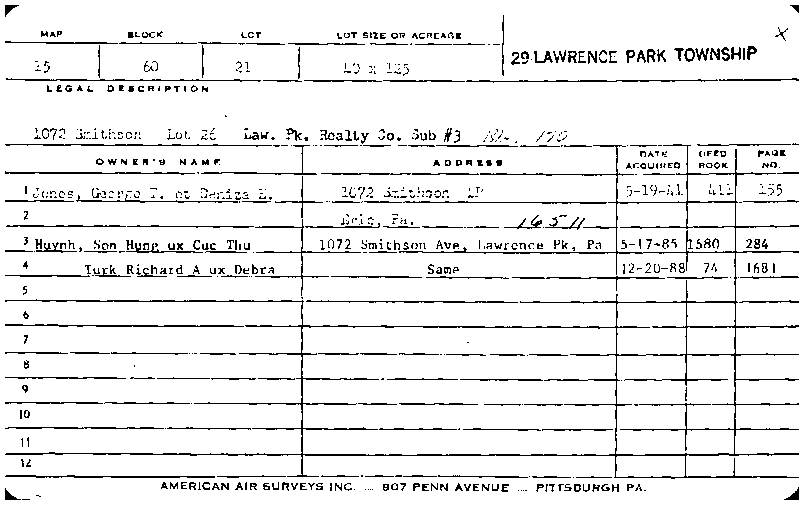 MAP BLOCK LOT LOT SIZE OR ACREAGE X
29 LAWRENCE PARK TOWNSHIP
15 60 21 40 x 125
LEGAL DESCRIPTION
1072 Smithson Lot 26 Law. Pk. Realty Co. Sub #3
OWNER'S NAME ADDRESS DATE ACQUIRED DEED BOOK PAGE NO.
1 Jones, George T. et 1072 Smithson LP 5-19-41 411 155
2 Erie, Pa. 16511
3 Huynh, Son Hung ux Cuc Thu 1072 Smithson Ave, Lawrence Pk, Pa 5-17-85 1580 284
4 Turk Richard A ux Debra Same 12-20-88 74 1681
5
6
7
8
9
10
11
12
AMERICAN AIR SURVEYS INC. ... 807 PENN AVENUE ... PITTSBURGH PA.